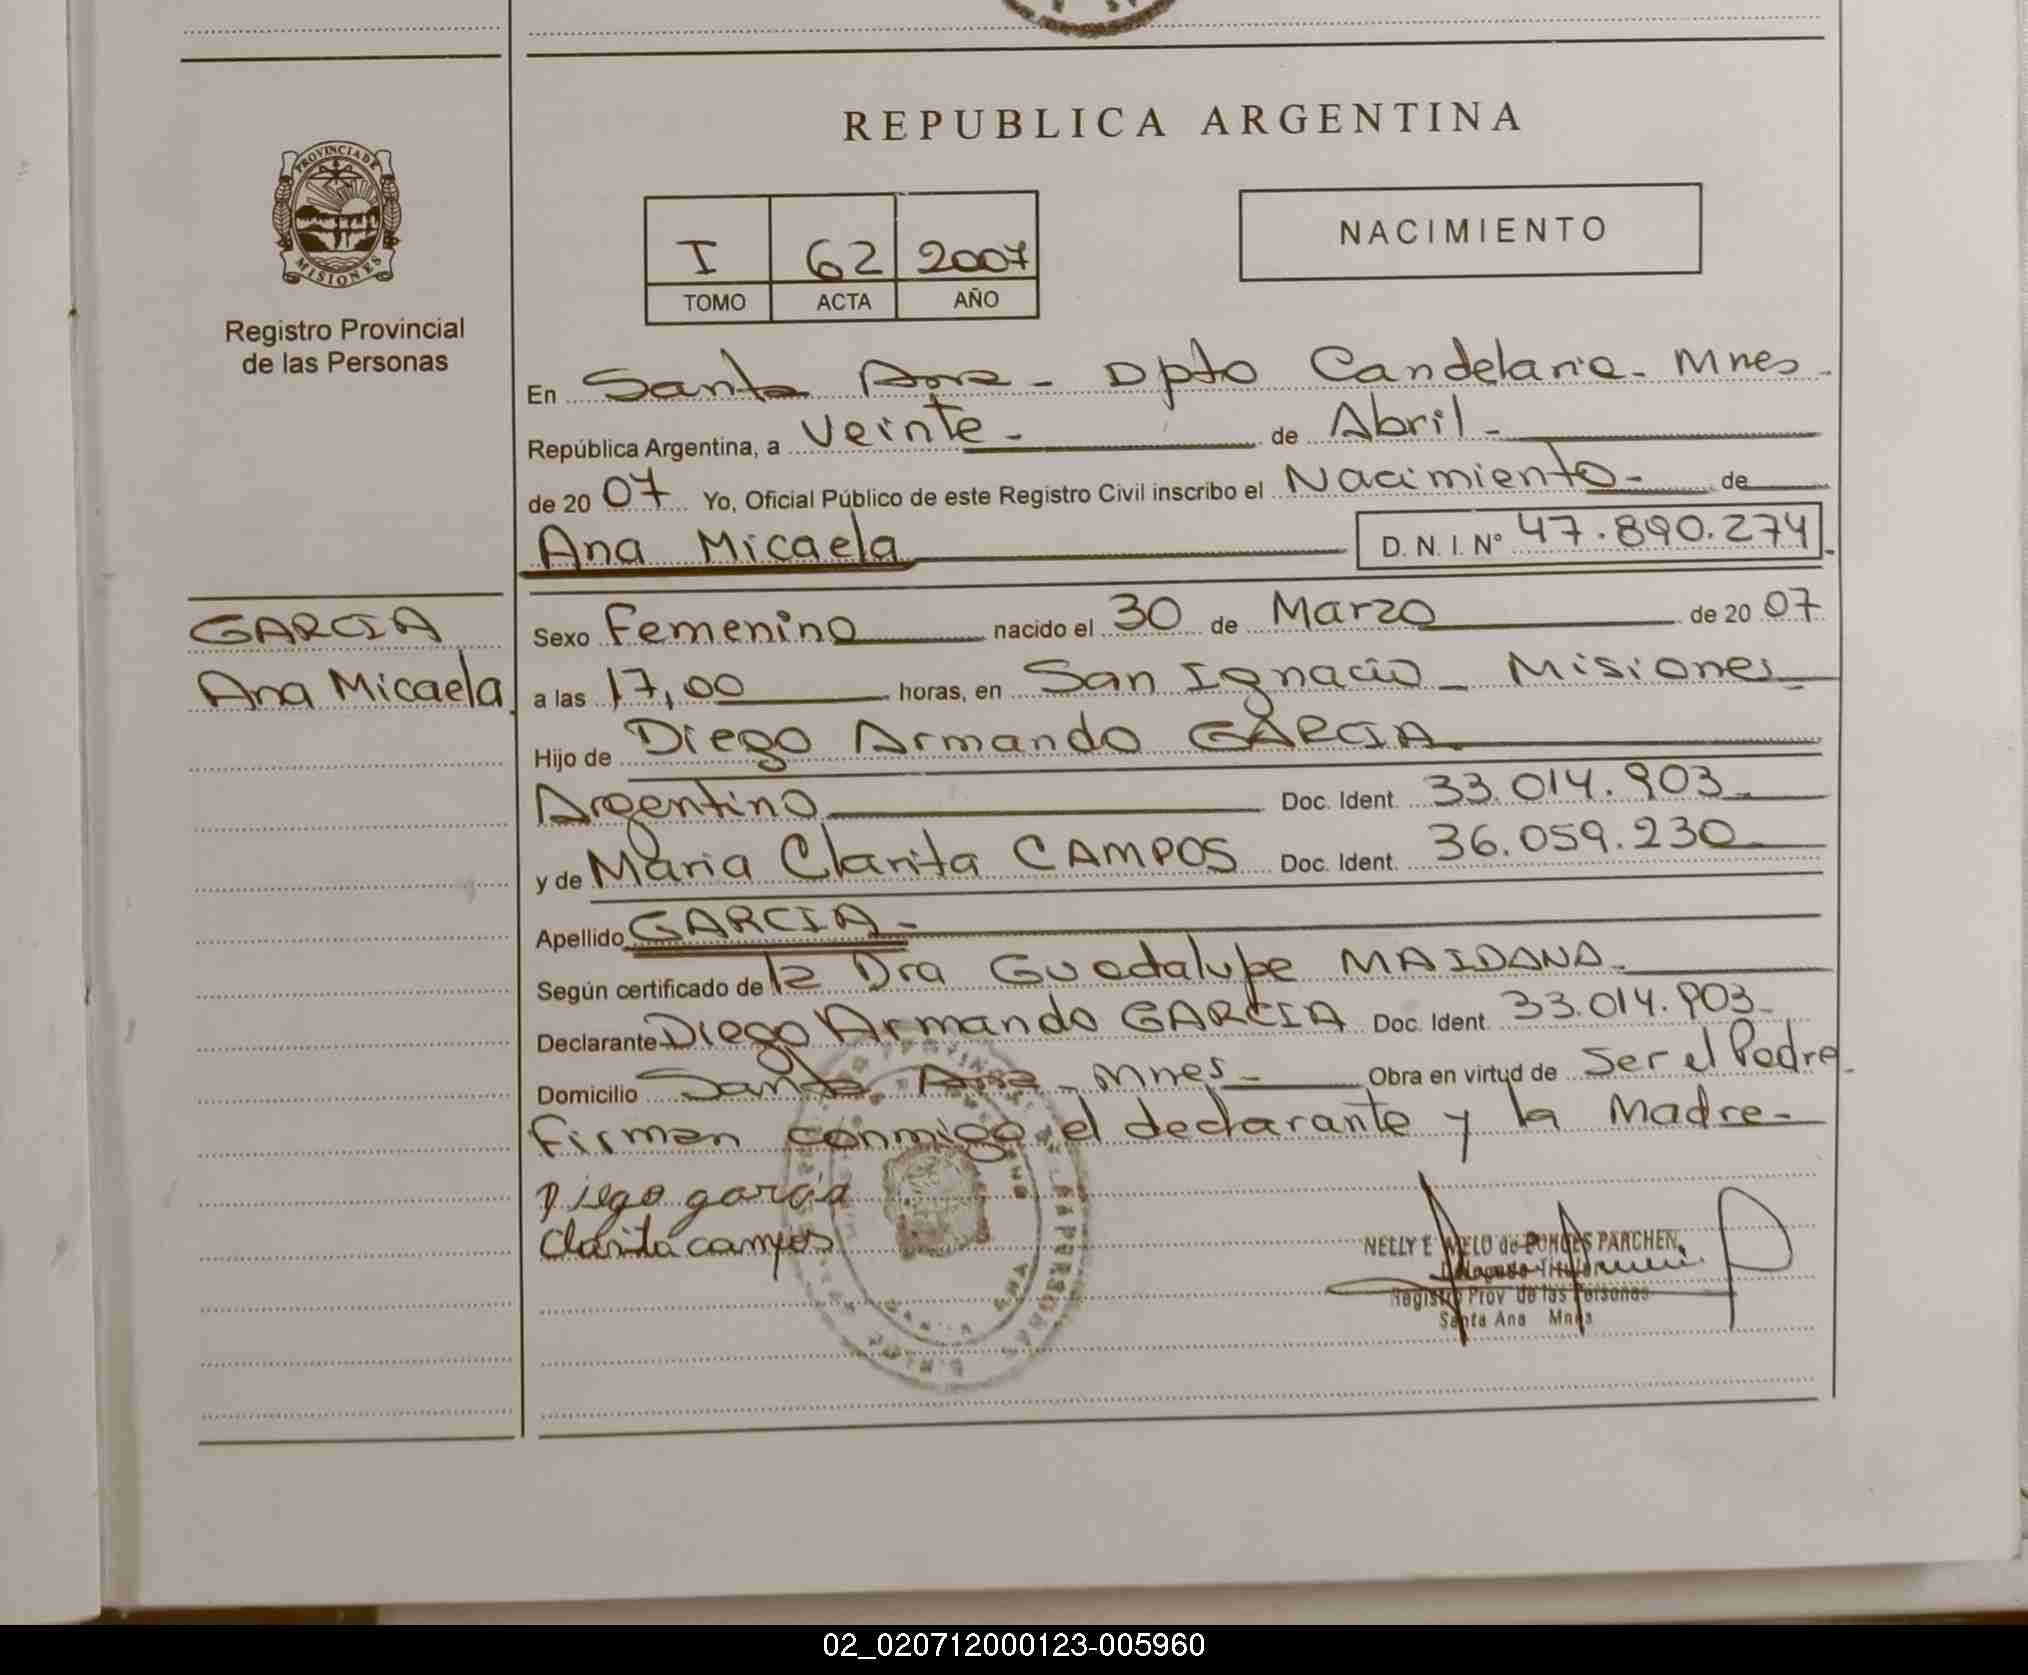 REPUBLICA ARGENTINA
PROVINCIA DE
MISIONES
Registro Provincial
de las Personas
I 62 2007
TOMO ACTA AÑO
NACIMIENTO
En Santa Ana - Dpto Candelaria - Mnes -
República Argentina, a Veinte - de Abril -
de 2007 Yo, Oficial Público de este Registro Civil inscribo el Nacimiento - de
Ana Micaela D. N. I. N° 47.890.274
GARCIA
Ana Micaela
Sexo Femenino nacido el 30 de Marzo de 2007
a las 17,00 horas, en San Ignacio - Misiones
Hijo de Diego Armando GARCIA
Argentino Doc. Ident. 33.014.903
y de Maria Clarita CAMPOS Doc. Ident. 36.059.230
Apellido GARCIA -
Según certificado de la Dra Guadalupe MAIDANA
Declarante Diego Armando GARCIA Doc. Ident. 33.014.903
Domicilio Santa Ana - Mnes - Obra en virtud de Ser el Padre
Firman conmigo el declarante y la Madre -
Diego garcia
Clarita campos
NELLY E MELO de PARCHEN
Registro Prov de las Personas
Santa Ana Mnes
02_020712000123-005960